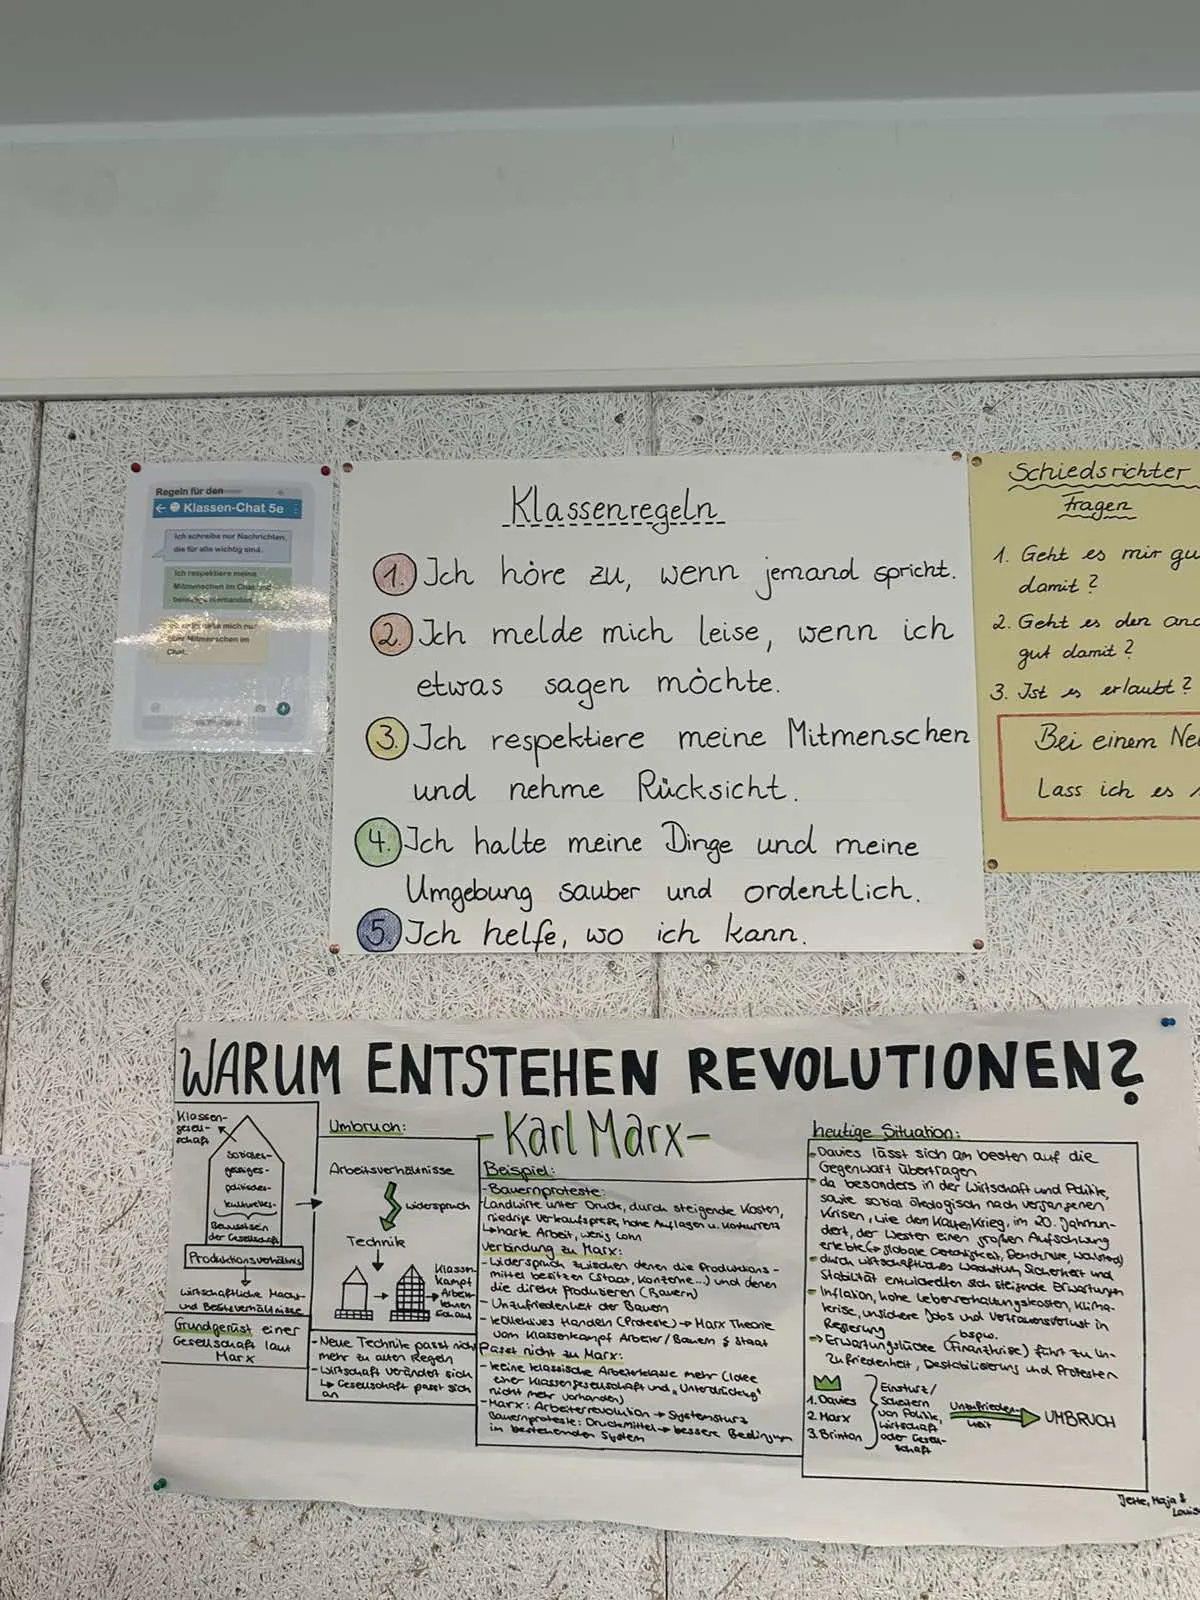 Regeln für den
Klassen-Chat 5e
Ich schreibe nur Nachrichten,
die für alle wichtig sind.
Ich respektiere meine
Mitmenschen im Chat und
beleidige niemanden.
mich nur
über Mitmenschen im
Chat.
Klassenregeln
1. Ich höre zu, wenn jemand spricht.
2. Ich melde mich leise, wenn ich
etwas sagen möchte.
3. Ich respektiere meine Mitmenschen
und nehme Rücksicht.
4. Ich halte meine Dinge und meine
Umgebung sauber und ordentlich.
5. Ich helfe, wo ich kann.
Schiedsrichter
Fragen
1. Geht es mir gu
damit?
2. Geht es den and
gut damit?
3. Ist es erlaubt?
Bei einem Nei
Lass ich es
WARUM ENTSTEHEN REVOLUTIONEN?
-Karl Marx-
Klassen-
gesell-
schaft
soziales-
geistiges-
politisches-
kulturelles-
Bewusstsein
der Gesellschaft
Produktionsverhältnis
wirtschaftliche Macht-
und Besitzverhältnisse
Grundgerüst einer
Gesellschaft laut
Marx
Umbruch:
Arbeitsverhältnisse
widerspruch
Technik
Klassen
Kampf
Arbeit
- Neue Technik passt nicht
mehr zu alten Regeln
- Wirtschaft verändert sich
↳ Gesellschaft passt sich
an
Beispiel:
- Bauernproteste:
Landwirte unter Druck, durch steigende Kosten,
niedrige Verkaufspreise, hohe Auflagen u. Konkurrenz
↳ harte Arbeit, wenig Lohn
Verbindung zu Marx:
- Widerspruch zwischen denen die Produktions-
mittel besitzen (Staat, Konzerne...) und denen
die direkt produzieren (Bauern)
- Unzufriedenheit der Bauern
- kollektives Handeln (Proteste) → Marx Theorie
vom Klassenkampf Arbeiter/Bauern & Staat
Passt nicht zu Marx:
- keine klassische Arbeiterklasse mehr (Idee
einer Klassengesellschaft und „Unterdrückung"
nicht mehr vorhanden)
- Marx: Arbeiterrevolution → Systemsturz
Bauernproteste: Druckmittel → bessere Bedingungen
in bestehendem System
heutige Situation:
- Davies lässt sich am besten auf die
Gegenwart übertragen
- da besonders in der Wirtschaft und Politik,
sowie sozial ökologisch nach vergangenen
Krisen, wie den Kalten Krieg, im 20. Jahrhun-
dert, der Westen einen großen Aufschwung
erlebte
- durch wirtschaftliches Wachstum, Sicherheit und
Stabilität entwickelten sich steigende Erwartungen
- Inflation, hohe Lebenserhaltungskosten, Klima-
krise, unsichere Jobs und Vertrauensverlust in
Regierung
bspw.
→ Erwartungslücke (Finanzkrise) führt zu Un-
zufriedenheit, Destabilisierung und Protesten
1. Davies
2. Marx
3. Brinton
Einsturz/
Scheitern
von Politik,
Wirtschaft
oder Gesell-
schaft
Unzufrieden-
heit
UMBRUCH
Jette, Maja &
Louis